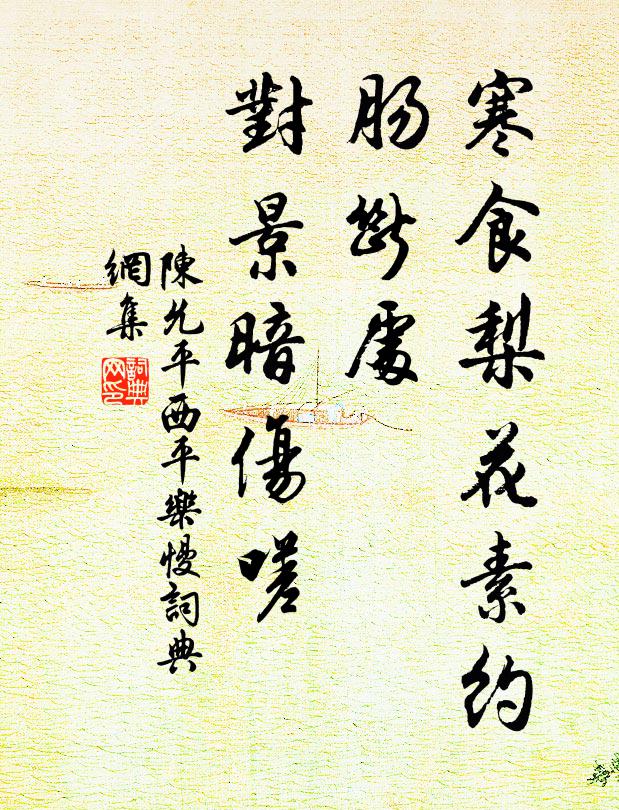 寒食梨花素約
腸斷處
對景暗傷嗟
陳允平西平樂慢詞典
網集
詞典
网印